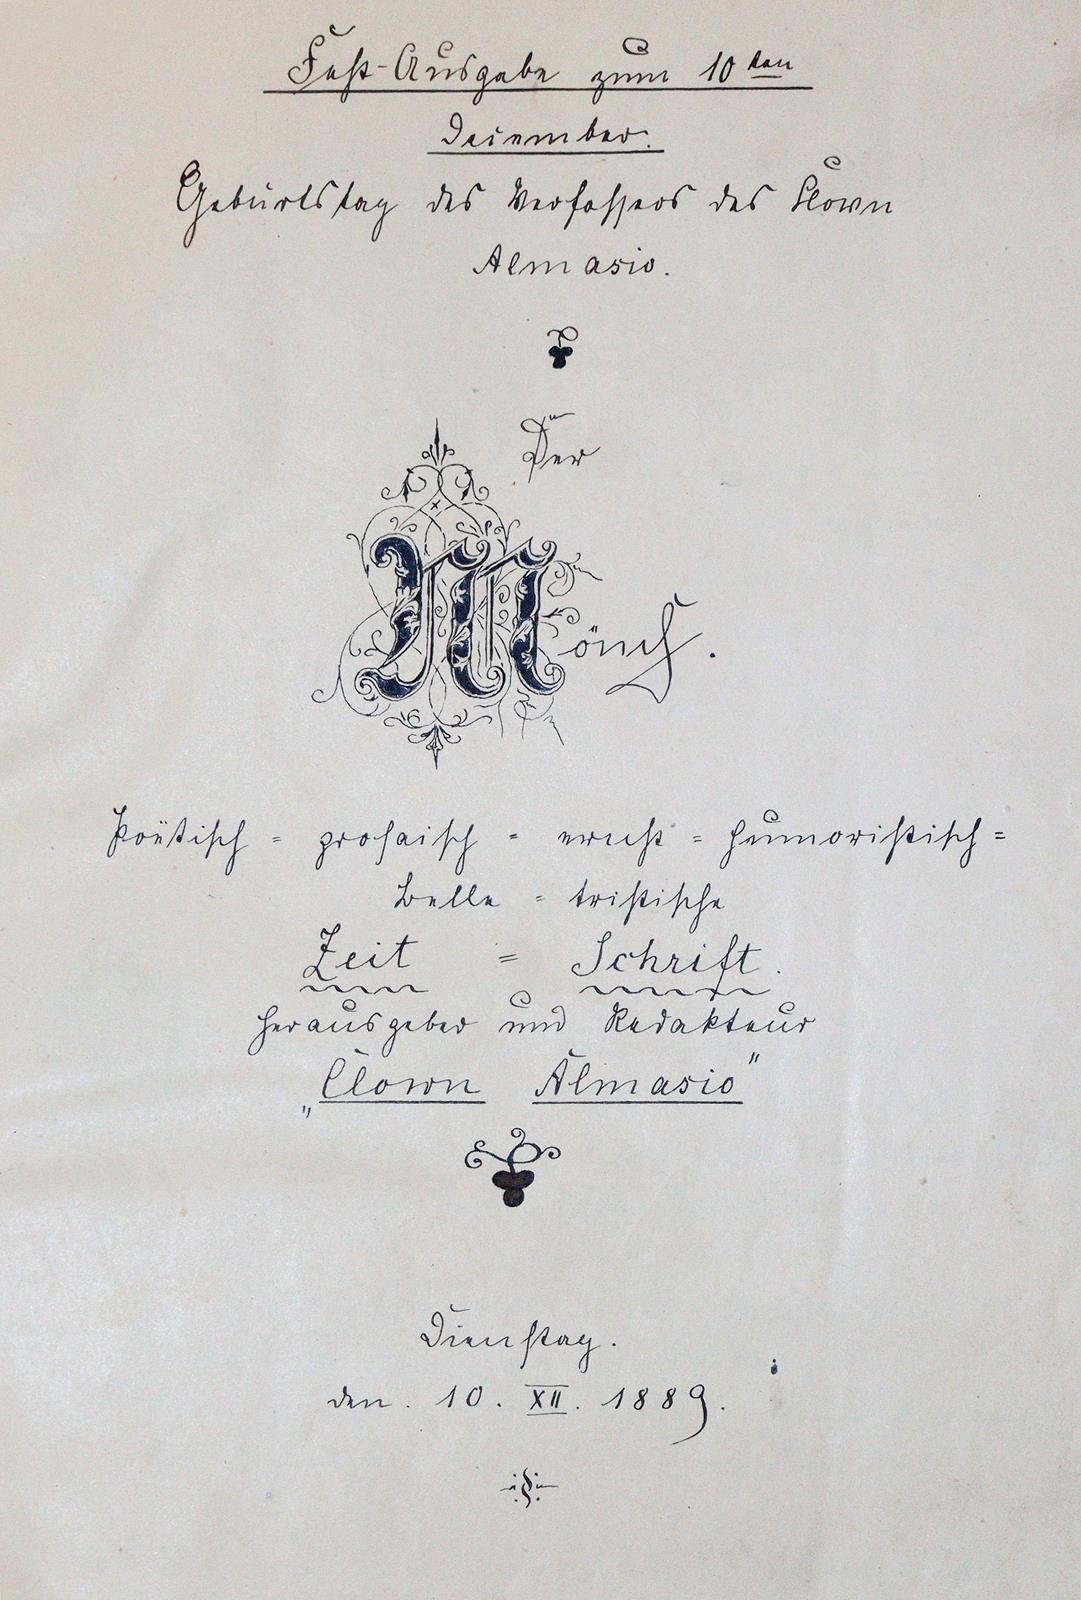 Fest-Ausgabe zum 10ten
December.
Geburtstag des Verfassers des Clown
Almasio.
Der
Mönch.
Poëtisch = prosaisch = ernst = humoristisch =
Belle = tristische
Zeit = Schrift.
Herausgeber und Redakteur
„Clown Almasio"
Dienstag.
den. 10. XII. 1889.